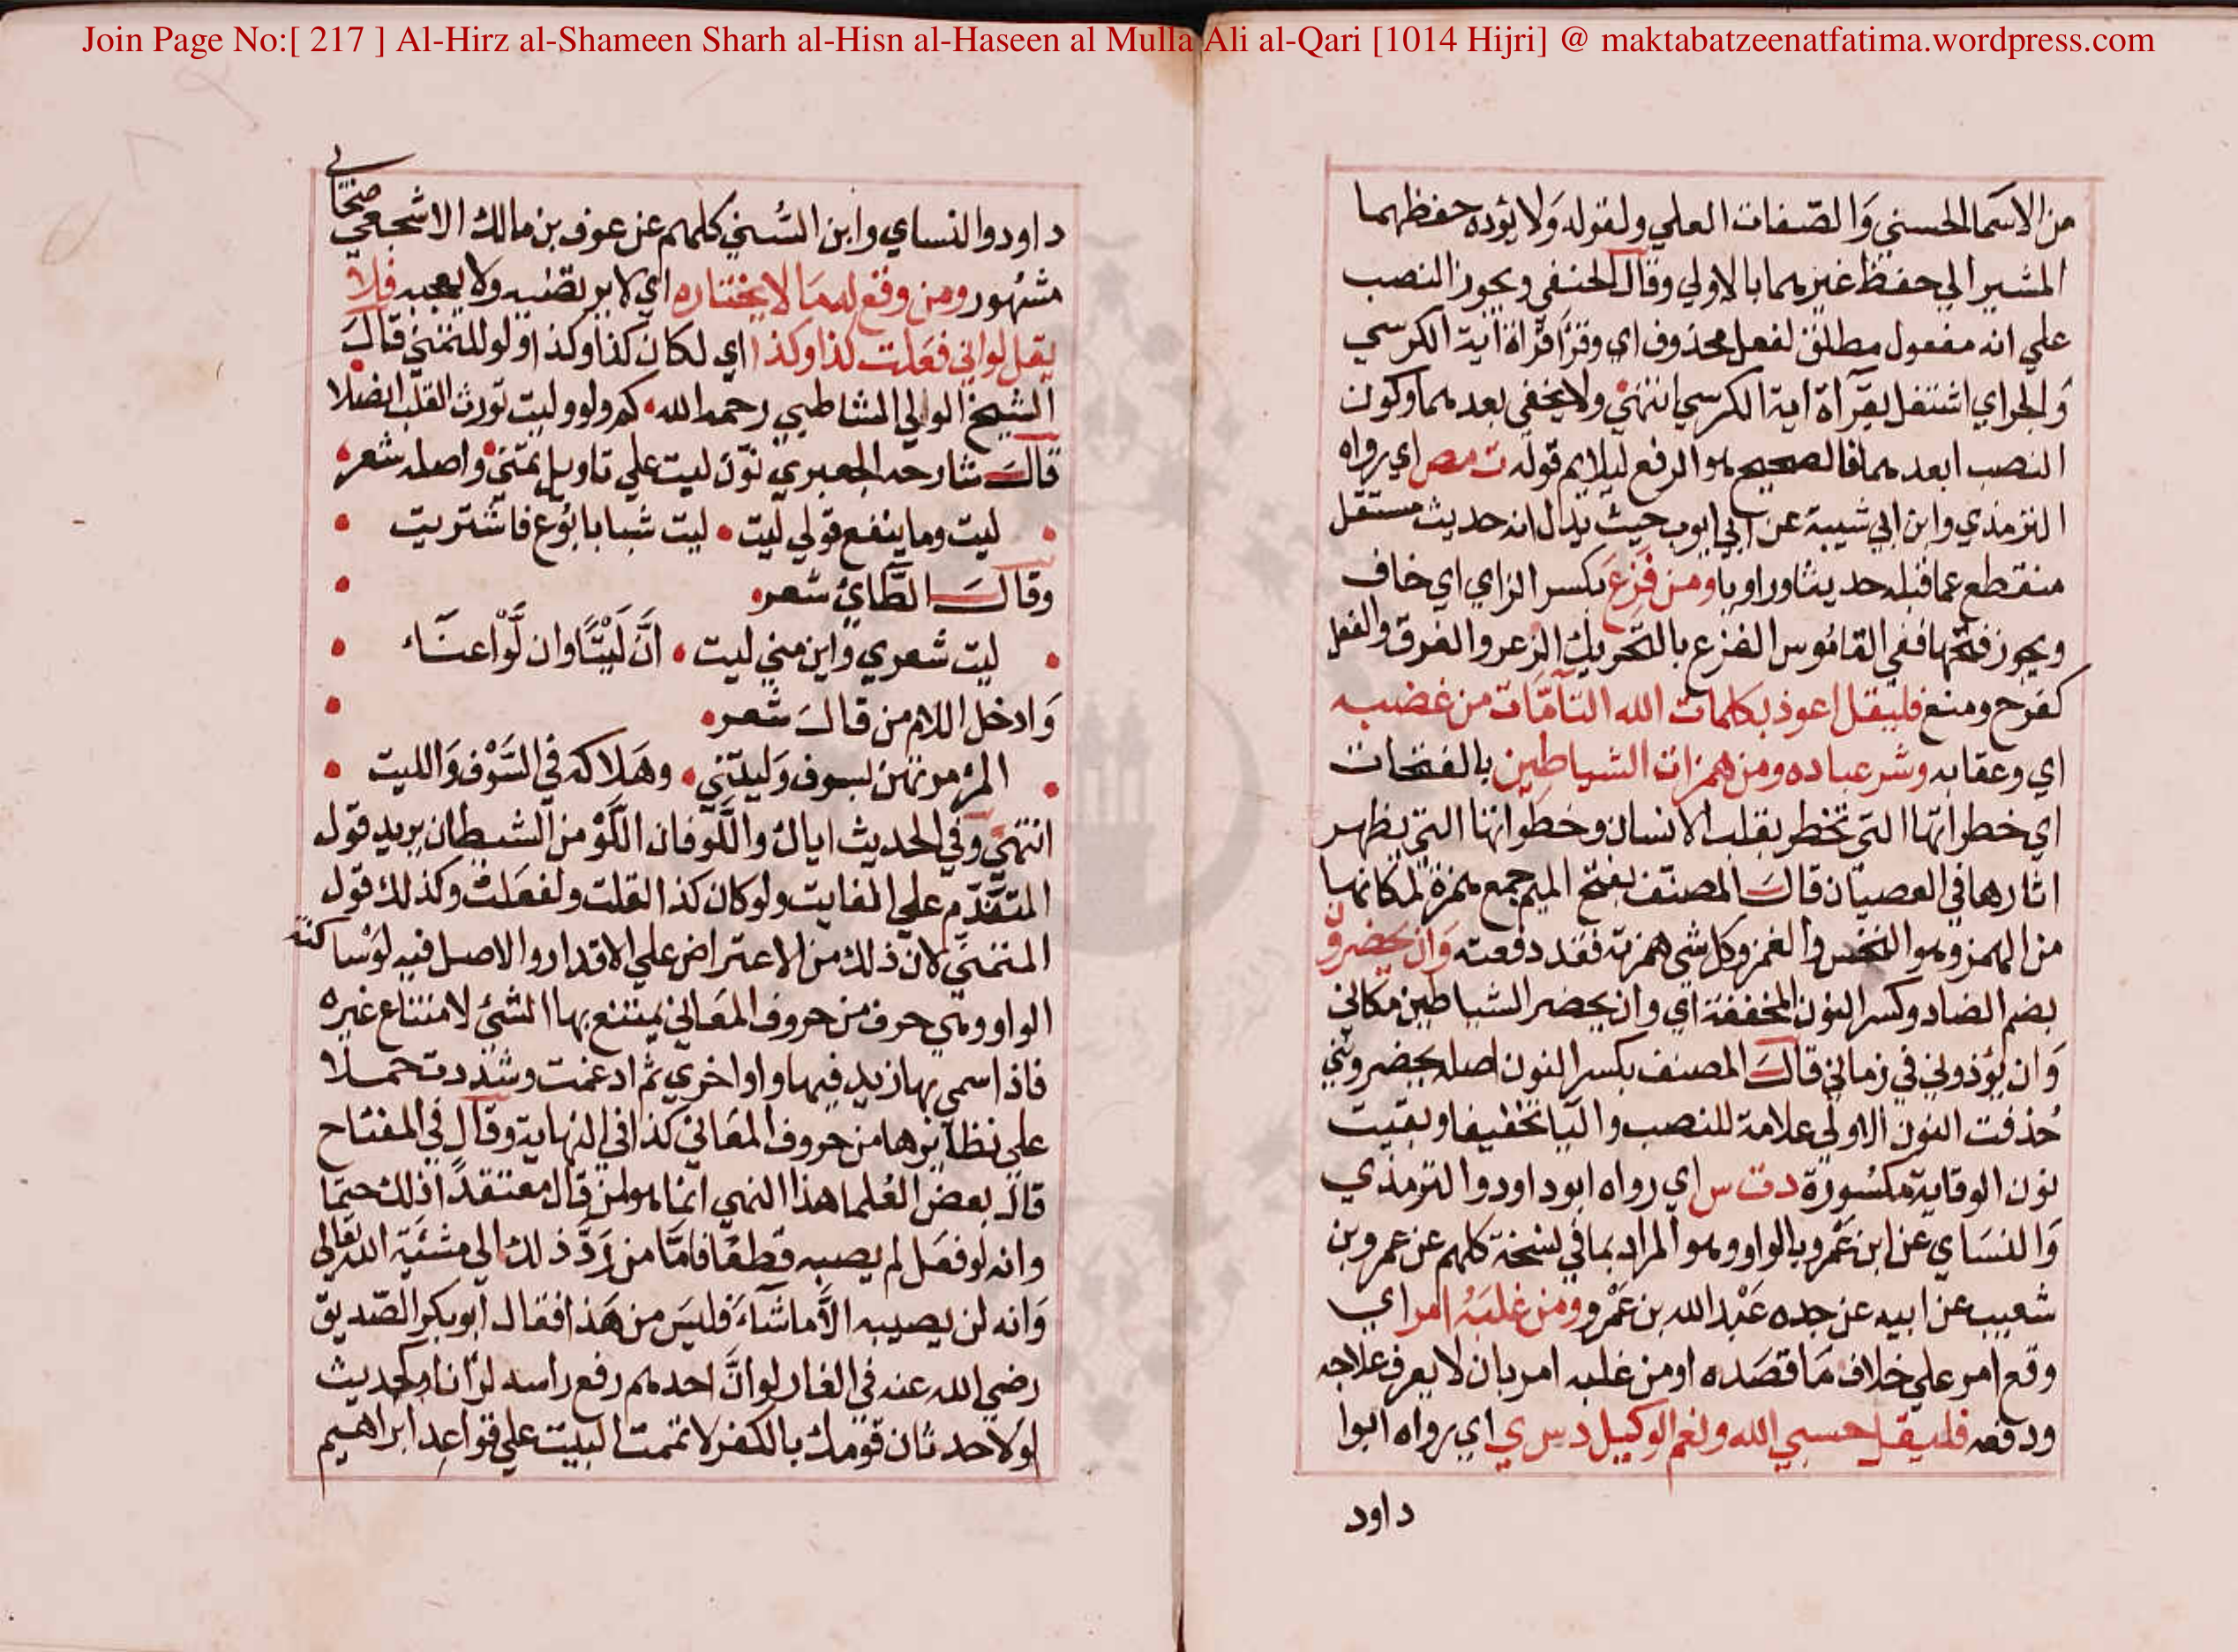 Join Page No:[ 217 ] Al-Hirz al-Shameen Sharh al-Hisn al-Haseen al Mulla Ali al-Qari [1014 Hijri] @ maktabatzeenatfatima.wordpress.com
من الاسما الحسني والصفات العلي ولقوله ولا يؤده حفظهما
المشير الي حفظ غيرهما بالاولي وقال الحنفي ويجوز النصب
علي انه مفعول مطلق لفعل محذوف اي وقرأ قراة اية الكرسي
والجر اي اشتغل بقرآة اية الكرسي انتهي ولا يخفي بعدهما وكون
النصب ابعدهما فالصحيح هو الرفع ليلايم قوله ت مص اي رواه
الترمذي وابن ابي شيبة عن ابي ايوب حيث يدل انه حديث مستقل
منقطع عما قبله حديثا وراويا ومن فزع بكسر الزاي اي خاف
ويجوز فتحها ففي القاموس الفزع بالتحريك الذعر والفرق والفعل
كفرح ومنع فليقل اعوذ بكلمات الله التآمّات من غضبه
اي وعقابه وشر عباده ومن همزات الشياطين بالفتحات
اي خطراتها التي تخطر بقلب الانسان وخطواتها التي يظهر
اثارها في العصيان قال المصنف بفتح الميم جمع همزة لمكانها
من الهمز وهو النخس والغمز وكل شي همزته فقد دفعته وان يحضرون
بضم الضاد وكسر النون المخففة اي وان يحضر الشياطين مكاني
وان يؤذوني في زماني قال المصنف بكسر النون اصله يحضرونني
حذفت النون الاولي علامة للنصب واليا تخفيفا وبقيت
نون الوقاية مكسورة د ت س اي رواه ابو داود والترمذي
والنساي عن ابن عمرو بالواو وهو المراد بما في نسخة كلهم عن عمرو بن
شعيب عن ابيه عن جده عبد الله بن عمرو ومن غلبه امر اي
وقع امر علي خلاف ما قصده او من غلبه امر بان لا يعرف علاجه
ودفعه فليقل حسبي الله ونعم الوكيل د س ي اي رواه ابوا
داود
داود والنساي وابن السني كلهم عن عوف بن مالك الاشجعي صحابي
مشهور ومن وقع له ما لا يختاره اي لا يرتضيه ولا يعجبه فلا
يقل لو اني فعلت كذا وكذا اي لكان كذا وكذا ولو للتمني قال
الشيخ الوالي الشاطبي رحمه الله كم ولو وليت تورث القلب انصلا
قال شارحه الجعبري نوّن ليت علي تاويل تمني واصله شعر
ليت وما ينفع قولي ليت ليت شبابا بوع فاشتريت
وقال الطّائ شعر
ليت شعري واين مني ليت انّ ليتًا وان لوّا عنآء
وادخل اللام من قال شعر
المرء مرتهن بسوف وليتني وهلاكه في السَّوْف والليت
انتهي وفي الحديث اياك واللّو فان اللَّوْ من الشيطان يريد قول
المتقدّم علي الفايت ولو كان كذا لقلت ولفعلت وكذلك قول
المتمني لان ذلك من الاعتراض علي الاقدار والاصل فيه لوْ ساكنة
الواو وهي حرف من حروف المعاني يمتنع بها الشئ لامتناع غيره
فاذا سمي بها زيد فيها واوا اخري ثم ادغمت وشددت حملا
علي نظآئرها من حروف المعاني كذا في النهاية وقال في المفتاح
قال بعض العلما هذا النهي انما هو لمن قال معتقدا ذلك حتما
وانه لو فعل لم يصبه قطعا فامّا من رَدَّ ذلك الي مشئية الله تعالى
وانه لن يصيبه الاّ ما شآء فليس من هذا فقال ابو بكر الصّديق
رضي الله عنه في الغار لو انّ احدهم رفع راسه لرآنا وكحديث
لولا حدثان قومك بالكفر لاتممت البيت علي قواعد ابراهيم